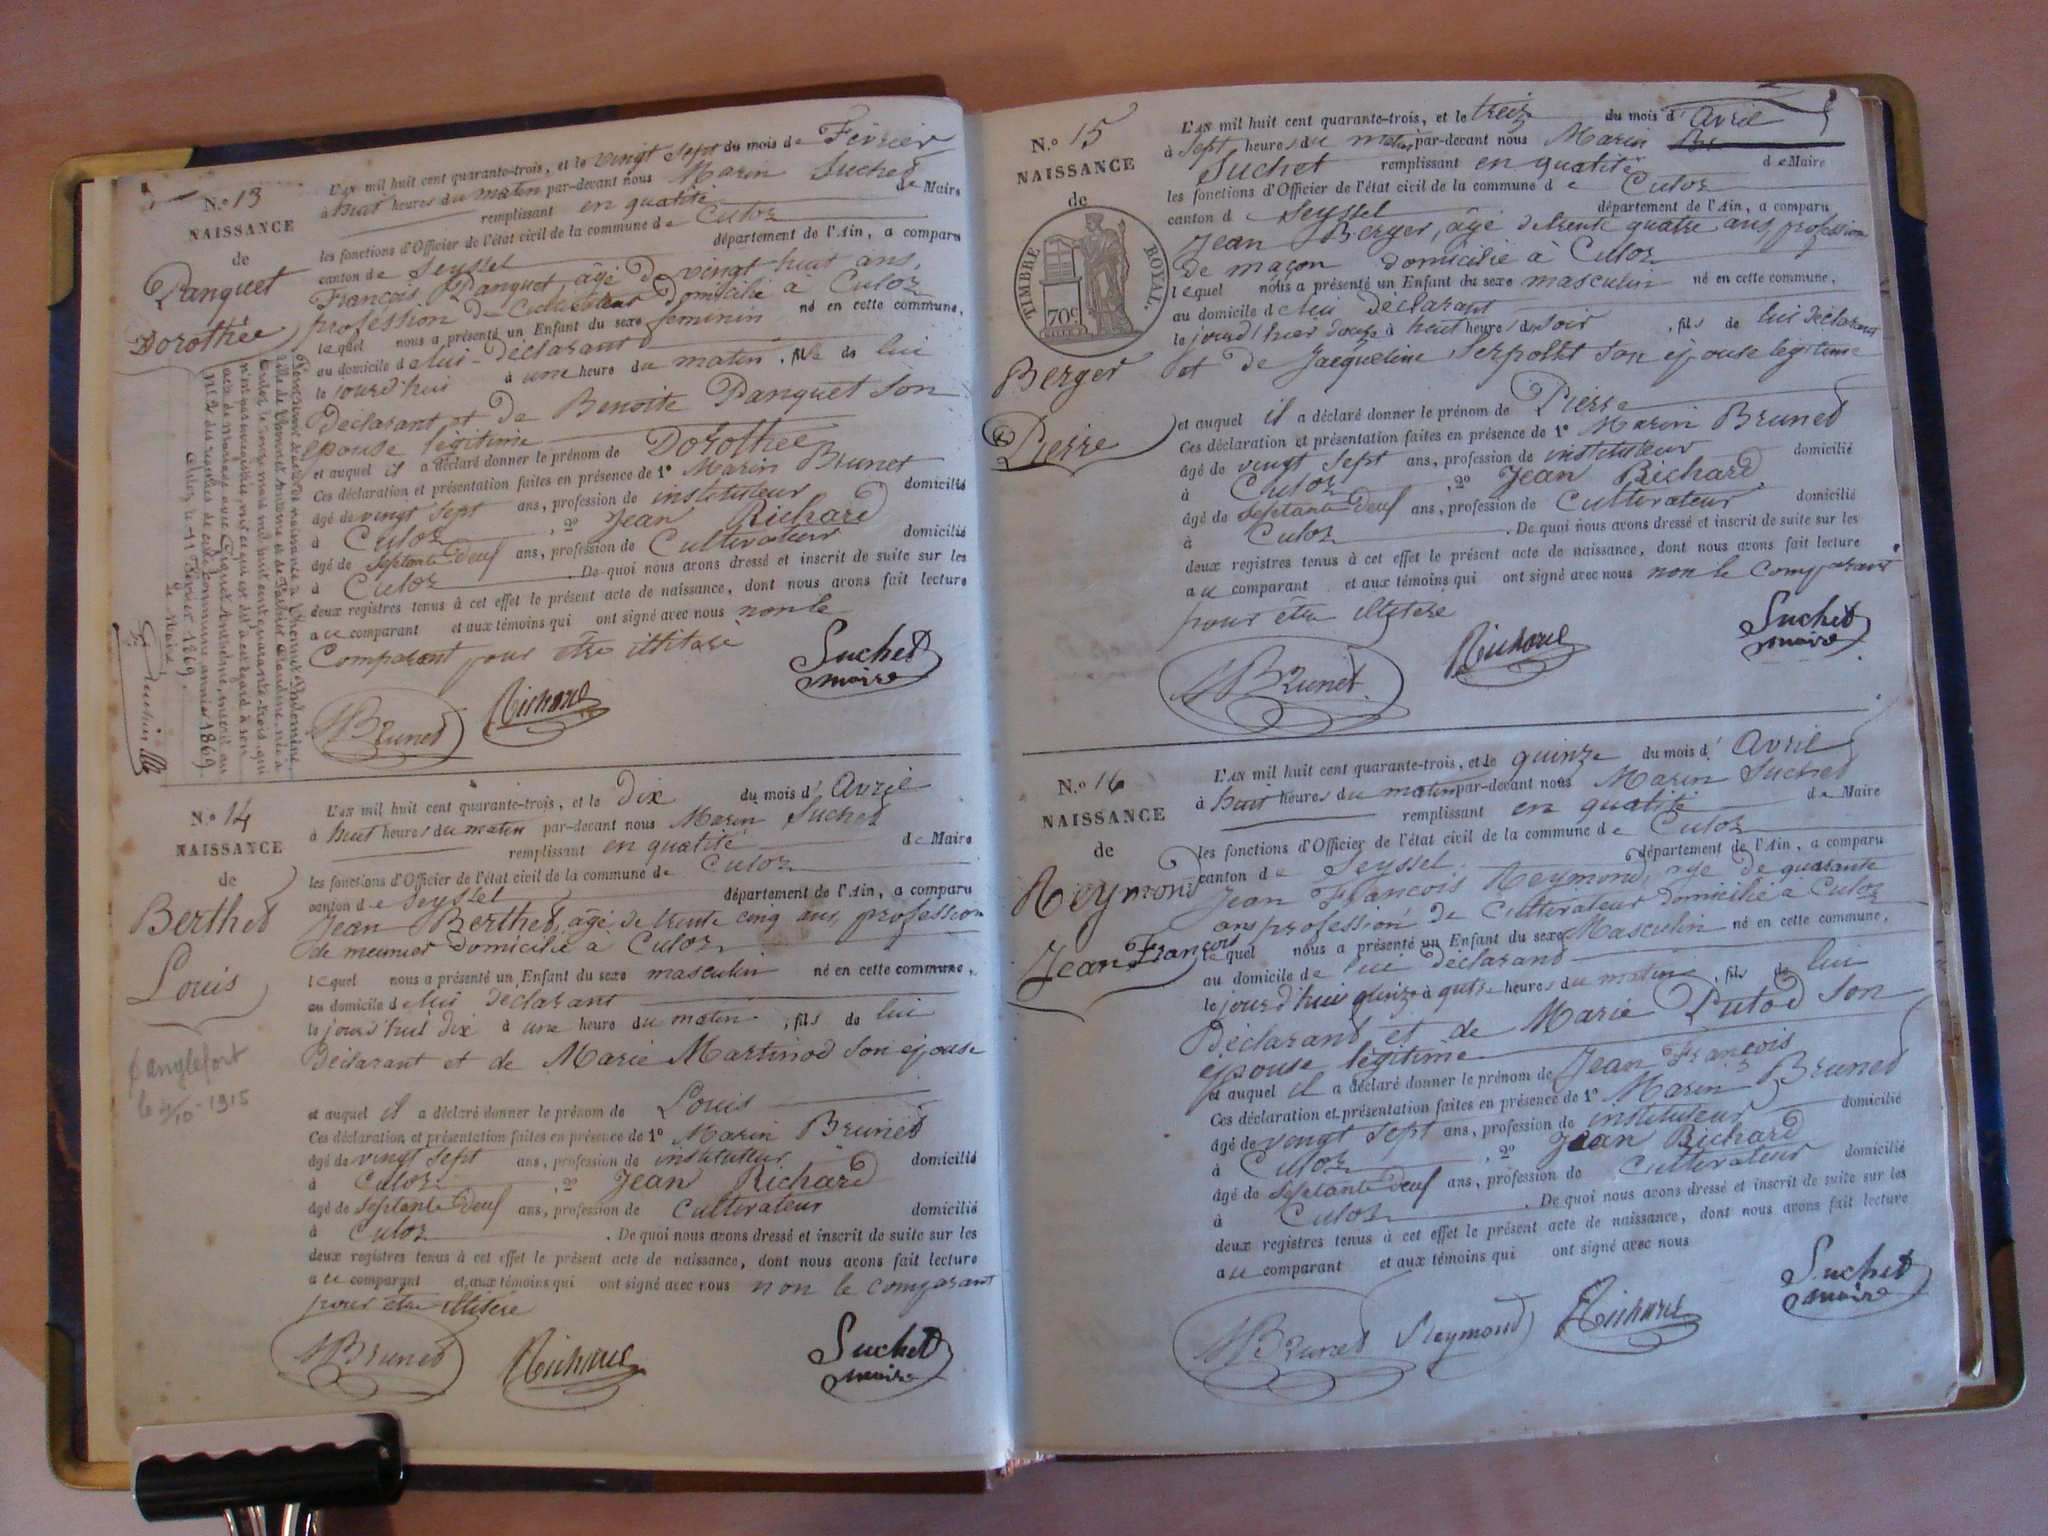 N.º 13
NAISSANCE
de
Panquet
Dorothée
L'AN mil huit cent quarante-trois, et le vingt sept du mois de Février
à huit heures du matin par-devant nous Marin Suchet
remplissant en qualité de Maire
les fonctions d'Officier de l'état civil de la commune de Culoz
canton de Seyssel département de l'Ain, a comparu
François Panquet, âgé de vingt huit ans,
profession de Cultivateur domicilié à Culoz
lequel nous a présenté un Enfant du sexe féminin né en cette commune,
au domicile de lui déclarant
le jourd'hui à une heure du matin, fille de lui
déclarant et de Benoite Panquet son
épouse légitime
et auquel il a déclaré donner le prénom de Dorothée
Ces déclaration et présentation faites en présence de 1º Marin Brunet
âgé de vingt sept ans, profession de instituteur domicilié
à Culoz, 2º Jean Richard
âgé de septante deuf ans, profession de Cultivateur domicilié
à Culoz. De quoi nous avons dressé et inscrit de suite sur les
deux registres tenus à cet effet le présent acte de naissance, dont nous avons fait lecture
au comparant et aux témoins qui ont signé avec nous non le
Comparant pour être illitere
Suchet
maire
MBrunet Richard
acte de mariage avec Antoine, inscrit au
nº 2 des registres de cette commune, année 1869.
Culoz le 11 Février 1869
Le Maire,
N.º 14
NAISSANCE
de
Berthet
Louis
Danglefort
1915
L'AN mil huit cent quarante-trois, et le dix du mois d'Avril
à huit heures du matin par-devant nous Marin Suchet
remplissant en qualité de Maire
les fonctions d'Officier de l'état civil de la commune de Culoz
canton de Seyssel département de l'Ain, a comparu
Jean Berthet, âgé de trente cinq ans, profession
de meunier domicilié à Culoz
lequel nous a présenté un Enfant du sexe masculin né en cette commune,
au domicile de lui déclarant
le jourd'hui dix à une heure du matin, fils de lui
déclarant et de Marie Martinod son épouse
et auquel il a déclaré donner le prénom de Louis
Ces déclaration et présentation faites en présence de 1º Marin Brunet
âgé de vingt sept ans, profession de instituteur domicilié
à Culoz, 2º Jean Richard
âgé de septante deuf ans, profession de Cultivateur domicilié
à Culoz. De quoi nous avons dressé et inscrit de suite sur les
deux registres tenus à cet effet le présent acte de naissance, dont nous avons fait lecture
au comparant et aux témoins qui ont signé avec nous non le comparant
pour être illitere
MBrunet Richard Suchet
maire
N.º 15
NAISSANCE
de
TIMBRE ROYAL.
70c
Berger
Pierre
L'AN mil huit cent quarante-trois, et le treize du mois d'Avril
à sept heures du matin par-devant nous Marin
Suchet remplissant en qualité de Maire
les fonctions d'Officier de l'état civil de la commune de Culoz
canton de Seyssel département de l'Ain, a comparu
Jean Berger, âgé de trente quatre ans, profession
de maçon domicilié à Culoz
lequel nous a présenté un Enfant du sexe masculin né en cette commune,
au domicile de lui déclarant
le jourd'hier douze à huit heures du soir, fils de lui déclarant
et de Jacqueline Serpollet son épouse légitime
et auquel il a déclaré donner le prénom de Pierre
Ces déclaration et présentation faites en présence de 1º Marin Brunet
âgé de vingt sept ans, profession de instituteur domicilié
à Culoz, 2º Jean Richard
âgé de septante deuf ans, profession de Cultivateur domicilié
à Culoz. De quoi nous avons dressé et inscrit de suite sur les
deux registres tenus à cet effet le présent acte de naissance, dont nous avons fait lecture
au comparant et aux témoins qui ont signé avec nous non le comparant
pour être illitere
MBrunet Richard Suchet
maire
N.º 16
NAISSANCE
de
Reymond
Jean François
L'AN mil huit cent quarante-trois, et le quinze du mois d'Avril
à huit heures du matin par-devant nous Marin Suchet
remplissant en qualité de Maire
les fonctions d'Officier de l'état civil de la commune de Culoz
canton de Seyssel département de l'Ain, a comparu
Jean François Reymond, âgé de quarante
ans profession de Cultivateur domicilié à Culoz
lequel nous a présenté un Enfant du sexe Masculin né en cette commune,
au domicile de lui déclarant
le jourd'hui quinze à heures du matin, fils de lui
déclarant et de Marie Putod son
épouse légitime
et auquel il a déclaré donner le prénom de Jean François
Ces déclaration et présentation faites en présence de 1º Marin Brunet
âgé de vingt sept ans, profession de instituteur domicilié
à Culoz, 2º Jean Richard
âgé de septante deuf ans, profession de Cultivateur domicilié
à Culoz. De quoi nous avons dressé et inscrit de suite sur les
deux registres tenus à cet effet le présent acte de naissance, dont nous avons fait lecture
au comparant et aux témoins qui ont signé avec nous
MBrunet Reymond Richard Suchet
maire